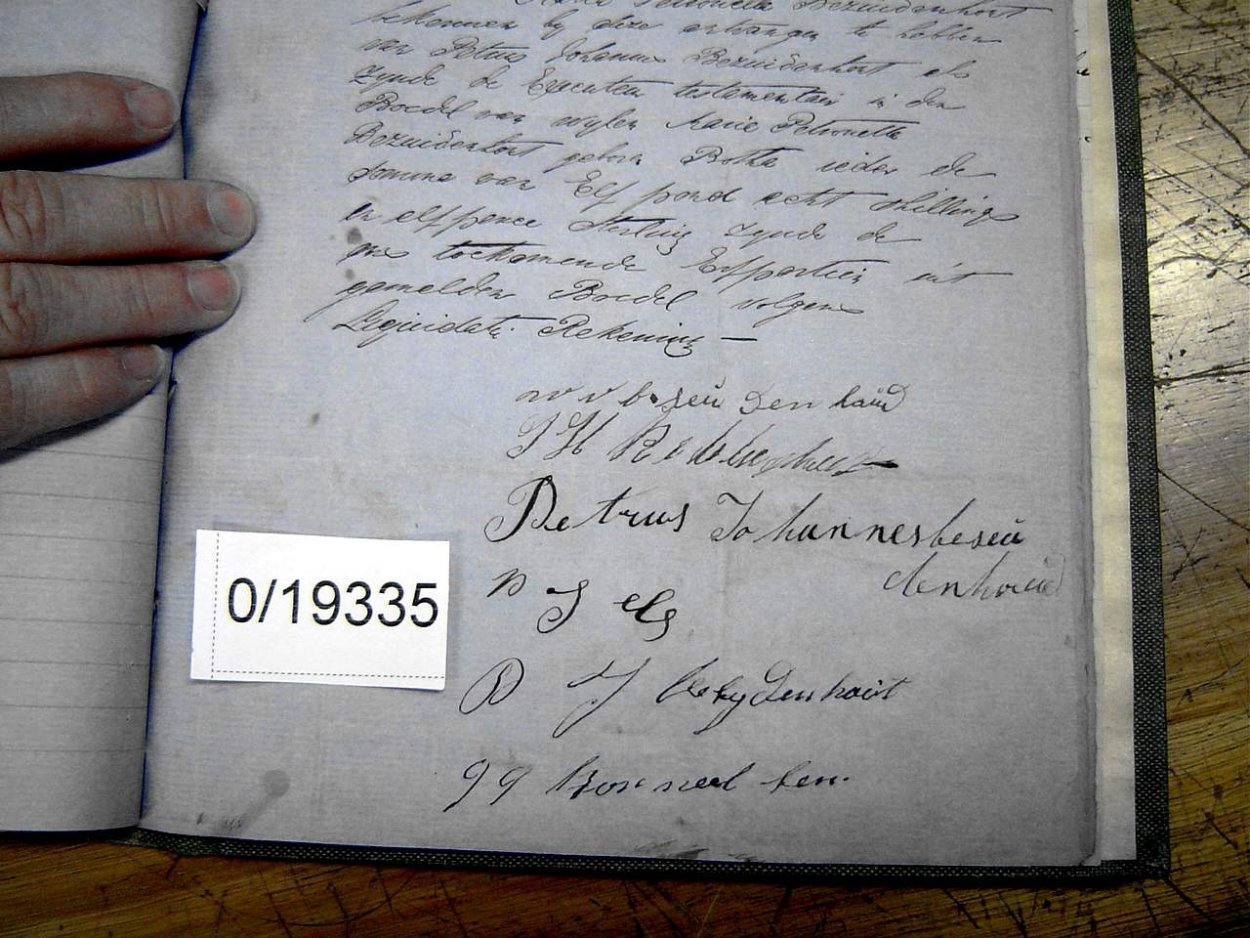 Maria Petronella Bezuidenhout
bekennen by deze ontvangen te hebben
van Petrus Johannes Bezuidenhout als
Zynde de Executeur testamentair in den
Boedel van wylen Maria Petronella
Bezuidenhout geboren Botha ieder de
somma van Elf pond acht shillings
en elf pence Sterling Zynde de
ons toekomende Erfportien uit
gemelden Boedel volgens
Liquidatie Rekening —
w v beseu den haud
J H
Petrus Johannes beseu
denhoud
P J els
P J Besydenhout
0/19335